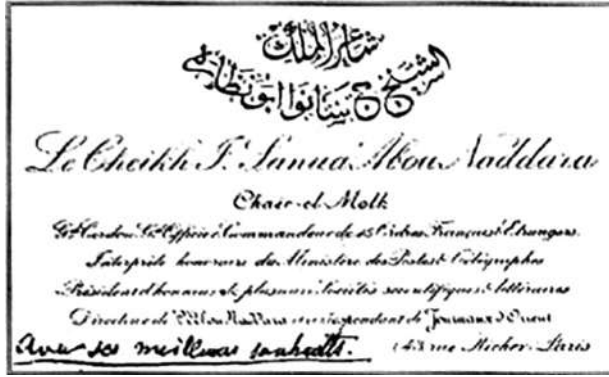 شاعر الملك
الشيخ ج سانوا ابو نظارة
Le Cheikh J. Sanua Abou Naddara
Chaïr-el-Molk
Gd. Cordon, Gd. Officier & Commandeur de 15 Ordres Français & Etrangers
Interprète honoraire du Ministère des Postes & Télégraphes
Président d'honneur de plusieurs Sociétés scientifiques & littéraires
Directeur de l'Abou Naddara correspondant de Journaux d'Orient
avec ses meilleurs souhaits.
43 rue Richer. Paris